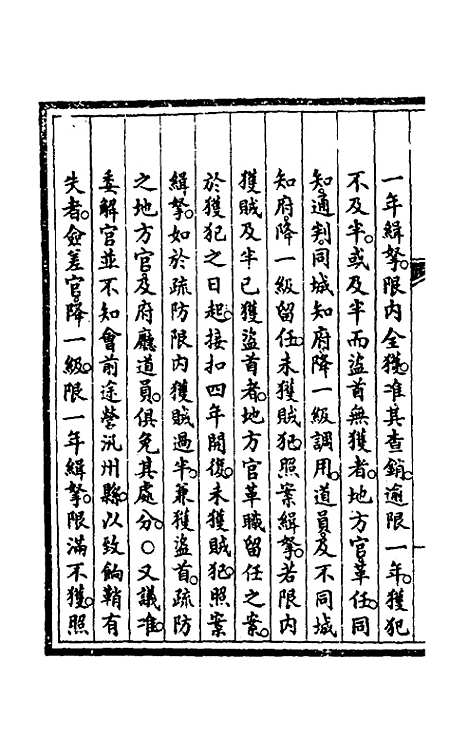 一年緝拏。限内全獲。准其查銷。逾限一年。獲犯
不及半。或及半而盜首無獲者。地方官革任。同
知。通判。同城知府降一級調用。道員。及不同城
知府。降一級留任。未獲賊犯。照案緝拏。若限内
獲賊及半已獲盜首者。地方官革職留任之案。
於獲犯之日起。接扣四年開復。未獲賊犯。照案
緝拏。如於疏防限内獲賊過半。兼獲盜首。疏防
之地方官。及府廳道員。俱免其處分。○又議准。
委解官並不知會前途營汛州縣。以致餉鞘有
失者。僉差官。降一級。限一年緝拏。限滿不獲。照